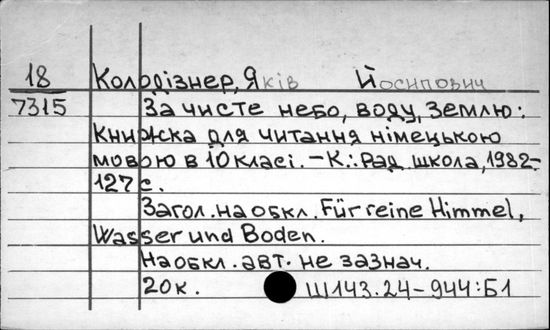 18 Колодізнер, Яків Йосипович
7315 За чисте небо, воду, землю:
Книжка для читання німецькою
мовою в 10 класі. – К.: Рад. школа, 1982-
127 с.
Загол. на обкл. Für reine Himmel,
Wasser und Boden.
На обкл. авт. не зазнач.
20 к. Ш143.24-944:Б1